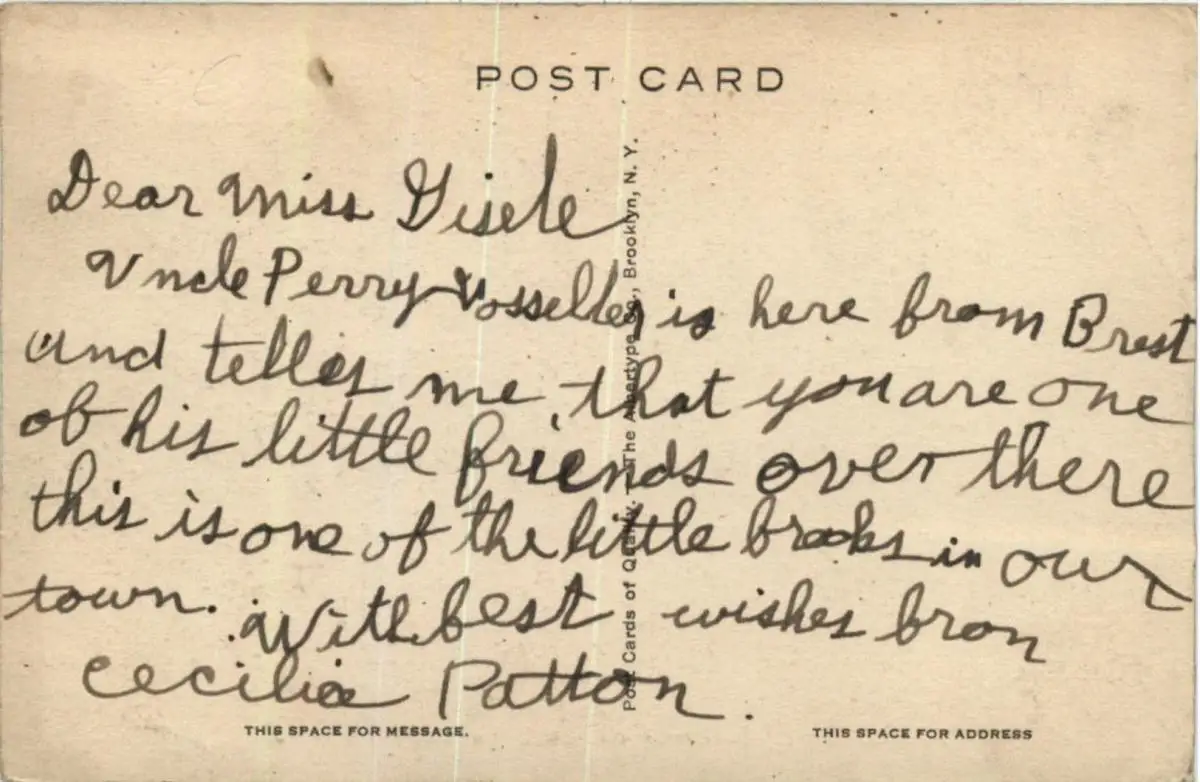 POST CARD
Dear Miss Gisele
Uncle Perry Vosseller is here from Brest
and tells me that you are one
of his little friends over there
this is one of the little brooks in our
town. With best wishes from
Cecilia Patton.
Post Cards of Quality. — The Albertype Co., Brooklyn, N. Y.
THIS SPACE FOR MESSAGE.
THIS SPACE FOR ADDRESS